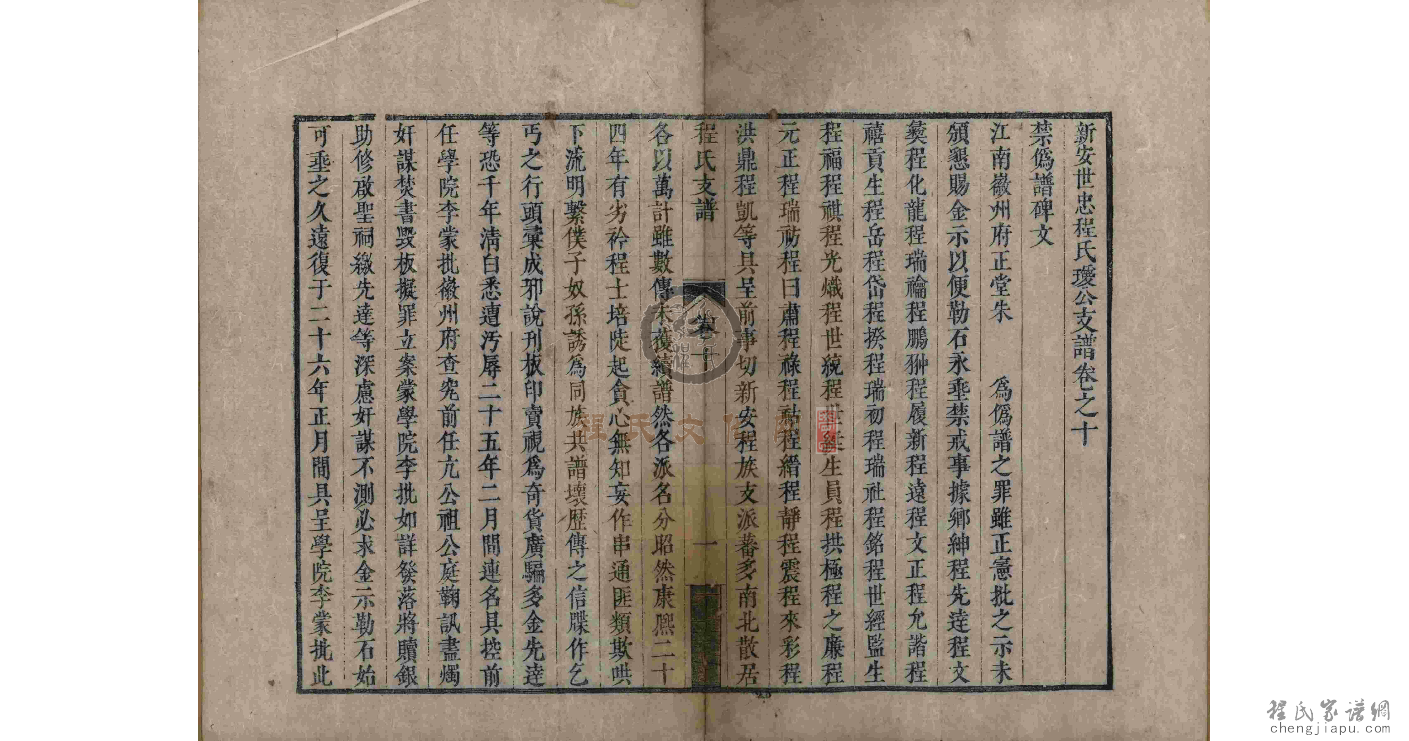 新安世忠程氏瓊公支譜卷之十
禁僞譜碑文
江南徽州府正堂朱 爲僞譜之罪雖正憲批之示未
頒懇賜金示以便勒石永垂禁戒事據鄉紳程先達程文
彝程化龍程瑞禴程鵬翀程履新程遠程文正程允諧程
禧貢生程岳程岱程揆程瑞初程瑞社程銘程世經監生
程福程祺程光熾程世綂程世 生員程拱極程之廉程
元正程瑞祊程曰肅程祿程 程縉程靜程震程來彩程
洪鼎程凱等具呈前事切新安程族支派蕃多南北散居
程氏支譜
卷十
一
各以萬計雖數傳未獲續譜然各派名分昭然康熙二十
四年有劣衿程士培陡起貪心無知妄作串通匪類欺哄
下流明繫僕子奴孫誘爲同族共譜壞歴傳之信牒作乞
丐之行頭彙成邪說刋板印賣視爲奇貨廣騙多金先達
等恐千年清白悉遭汚辱二十五年二月間連名具控前
任學院李蒙批徽州府查究前任亢公祖公庭鞠訊盡燭
奸謀焚書毀板擬罪立案蒙學院李批如詳發落將贖銀
助修啟聖祠繳先達等深慮奸謀不測必求金示勒石始
可垂之久遠復于二十六年正月間具呈學院李蒙批此
程氏文化
程氏家谱網
chengjiapu.com